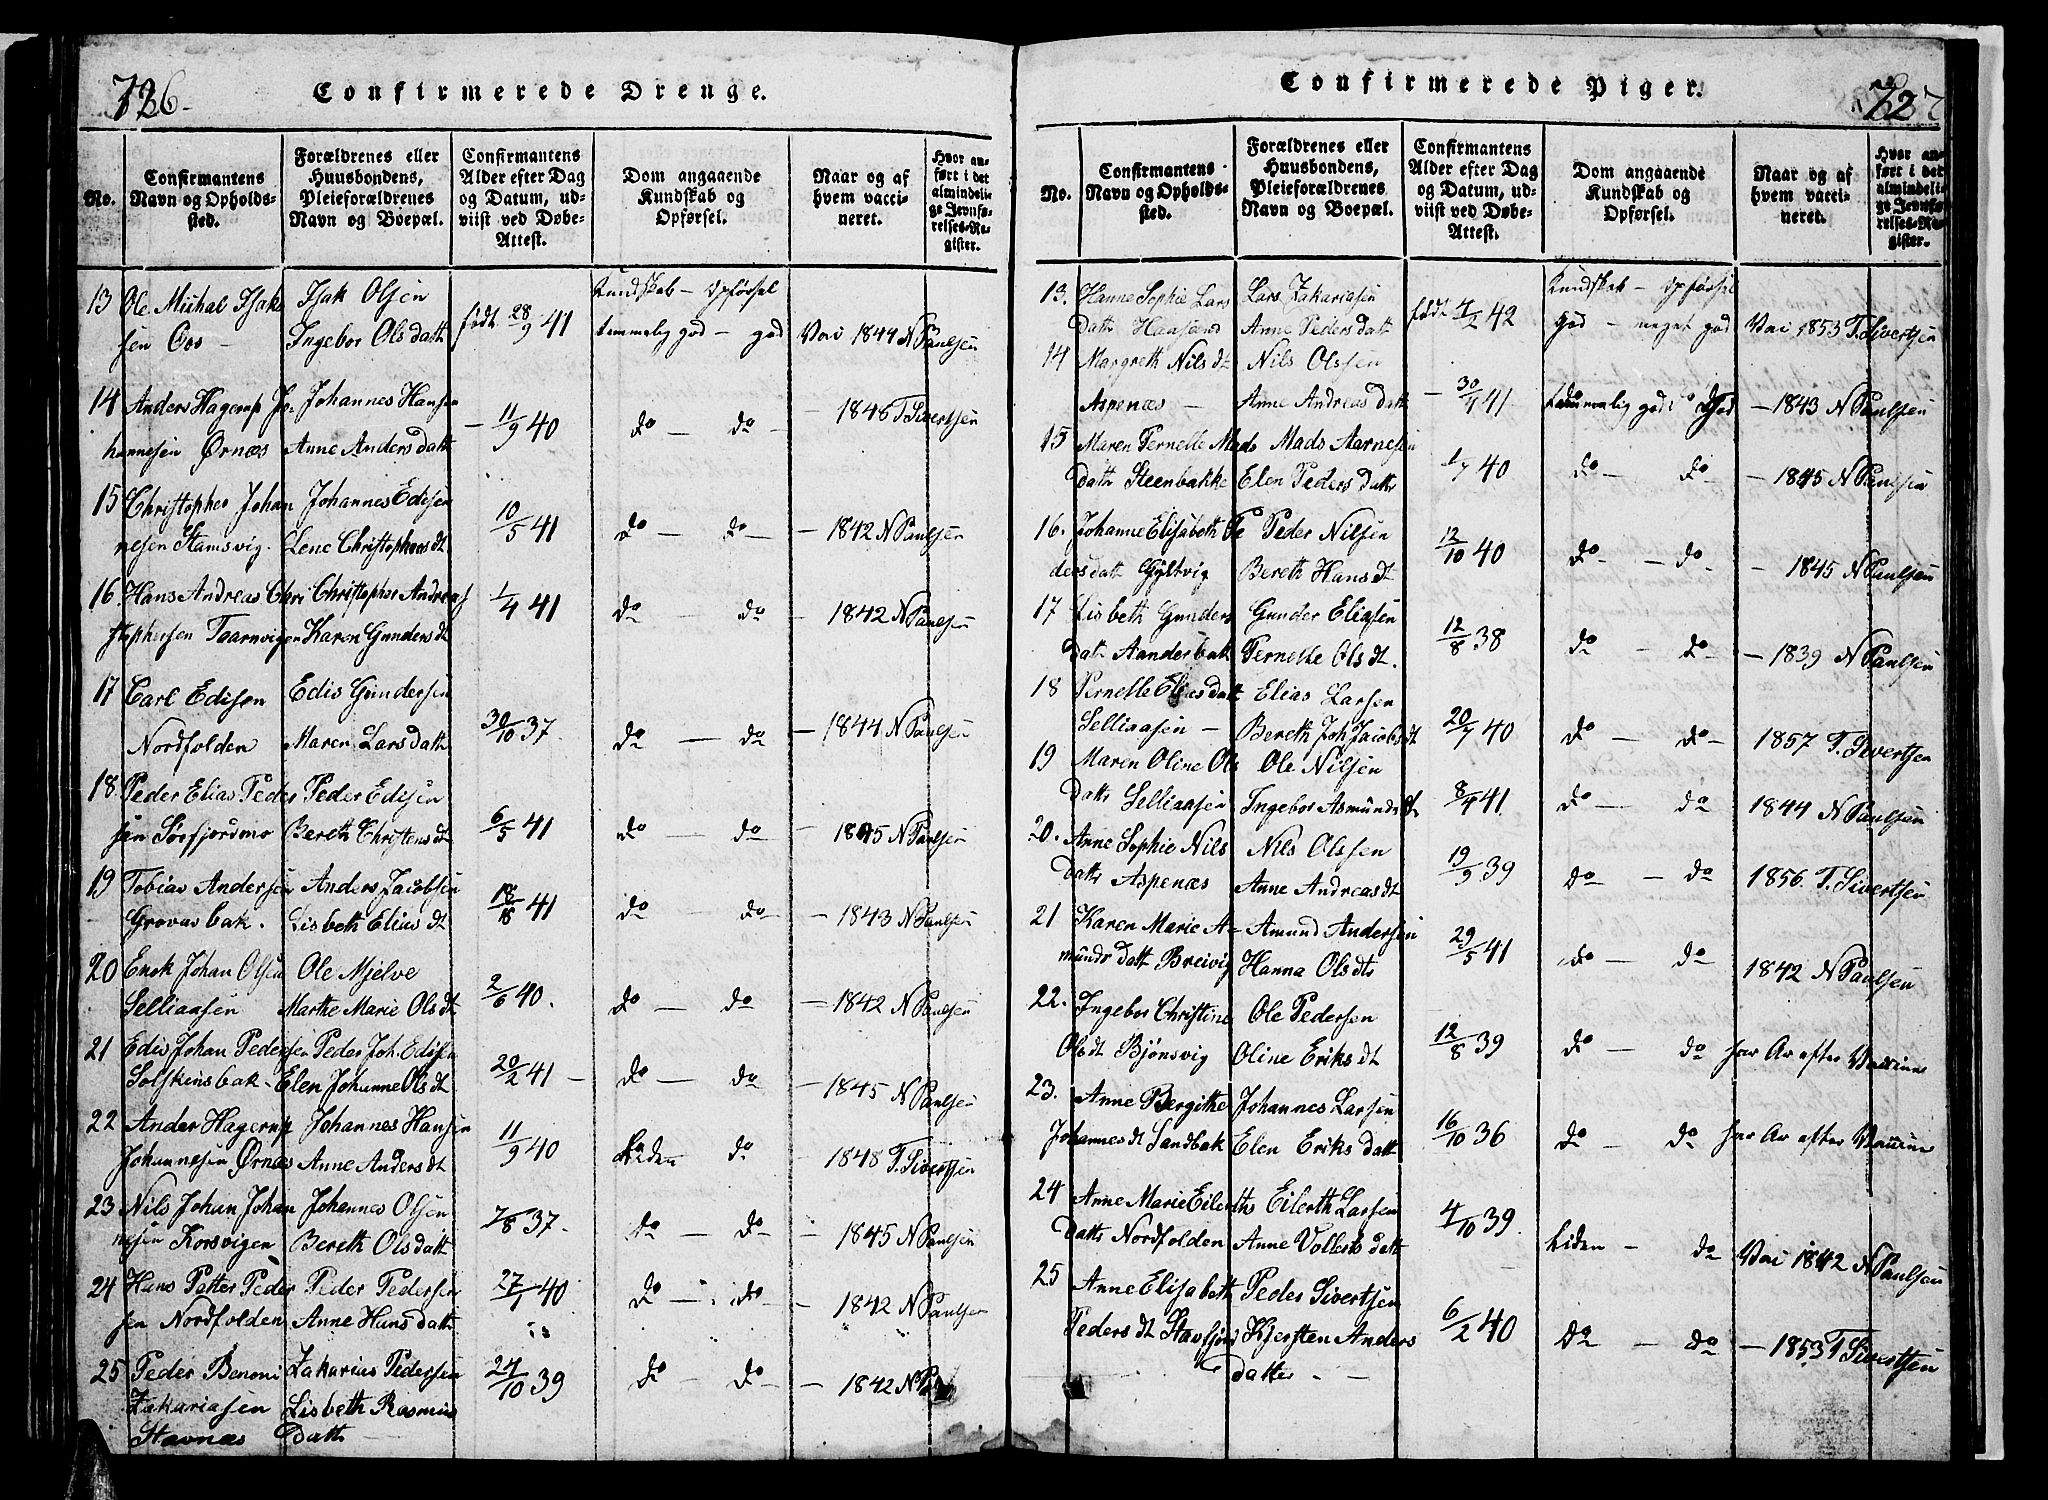 726
Confirmerede Drenge.
No.
Confirmantens
Navn og Opholds-
sted.
Forældrenes eller
Huusbondens,
Pleieforældrenes
Navn og Boepæl.
Confirmantens
Alder efter Dag
og Datum, ud-
viist ved Døbe-
Attest.
Dom angaaende
Kundskab og
Opførsel.
Naar og af
hvem vacci-
neret.
Hvor an-
ført i det
almindeli-
ge Jevnfø-
relses-Re-
gister.
13 Ole Michal Isak Isak Olsen Kundskab - Opførsel
sen Oos - Ingebor Olsdatt født 28/9 41 temmelig god - god Vac 1844 N Paulsen
14 Anders Hagerup Jo- Johannes Hansen
hannesen Ørnæs Anne Andersdatt - 11/9 40 do - do - - 1846 T. Sivertsen
15 Christopher Johan Johannes Edisen
nesen Stamsvig. Lene Christophers dt 10/5 41 do - do - - 1842 N Paulsen
16 Hans Andreas Chri Christopher Andreas
stophersen Taarnvigen Karen Gunders dt 1/4 41 do - do - - 1842 N Paulsen
17 Carl Edisen Edis Gundersen
Nordfolden Maren Larsdatt 30/10 37 do - do - 1844 N Paulsen
18 Peder Elias Peder Peder Edisen
sen Sørfjordmo Bereth Christens dt 6/5 41 do - do - 1845 N Paulsen
19 Tobias Andersen Anders Jacobsen
Grovasbak. Lisbeth Elias dt 41 do - do - - 1843 N Paulsen
20 Erik Johan Olsen Ole Mjelve
Selliaasen Marthe Marie Ols dt 2/6 40. do - do - 1842 N Paulsen
21 Edis Johan Pedersen Peder Joh. Edisen
Solskinsbak - Elen Johanne Ols dt 20/2 41 - do - do - 1845 N Paulsen
22 Ander Hagerup Johannes Hansen
Johannesen Ørnæs Anne Anders dt 11/9 40 Liden do - 1848 T. Sivertsen
23 Nils Johan Johan Johannes Olsen
nesen Korsvigen Bereth Olsdatt 7/8 37. do - do - - 1845 N Paulsen
24 Hans Petter Peder Peder Pedersen
sen Nordfolden Anne Hansdatt 27/1 40 do - do - - 1842 N Paulsen
25 Peder Benoni Zakarias Pedersen
Zakariasen Lisbeth Rasmus 24/10 39 do - do - - 1842 N
Stavnæs datt
Confirmerede Piger.
727
No.
Confirmantens
Navn og Opholds-
sted.
Forældrenes eller
Huusbondens,
Pleieforældrenes
Navn og Boepæl.
Confirmantens
Alder efter Dag
og Datum, ud-
viist ved Døbe-
Attest.
Dom angaaende
Kundskab og
Opførsel.
Naar og af
hvem vacci-
neret.
Hvor an-
ført i det
almindeli-
ge Jevnfø-
relses-Re-
gister.
13. Hanne Sophie Lars Lars Zakariasen Kundskab - Opførsel
datt Anne Pedersdatt født 42 God - meget god Vac 1853 T. Sivertsen
14 Margreth Nils dt Nils Olssen
Aspenæs - Anne Andreasdatt - 41 temmelig god God - 1843 N Paulsen
15 Maren Pernelle Mads Mads Aarnesen
datt Steenbakke Elen Pedersdatt 1/7 40 do - do - - 1845 N Paulsen
16. Johanne Elisabeth Pe Peder Nilsen
dersdatt Gyltvig Bereth Hans dt 12/10 40 do - - do - - 1845 N Paulsen
17 Lisbeth Gunders Gunder Eliasen
datt Aanderbak Pernelle Ols dt. 12/8 38 do - do - - 1839 N Paulsen
18 Pernelle Eliasdatt Elias Larsen
Selliaasen - Bereth Joh Jacobs dt 20/7 40 do - do - 1857 T. Sivertsen
19 Maren Oline Ols Ole Nilsen
datt Selliaasen Ingebor Asmunds dt 41 do - do 1844 N Paulsen
20. Anne Sophie Nils Nils Olssen
datt Aspenæs Anne Andreas dt 19/9 39 do - do - 1856. T. Sivertsen
21 Karen Marie A- Amund Andersen
munds datt Breivig Hanna Ols dtr 29/5 41 do - do - 1842 N Paulsen
22. Ingebor Christine Ole Pedersen
Ols dt Bjønsvig Oline Eriks dt 12/8 39 do - do har Ar efter Vaccine
23. Anne Bergithe Johannes Larsen
Johannes dt Sandbak Elen Eriksdatt 16/10 36 do - do har Ar efter Vaccine
24 Anne Marie Eilerths Eilerth Larsen
datt Nordfolden Anne Vollertsdatt 4/10 39. Liden - do Vac 1842 N Paulsen
25 Anne Elisabeth Peder Sivertsen
Peders dt Stavfjord Kjersten Anders 6/2 40 do - do - - 1853 T Sivertsen
datter - -